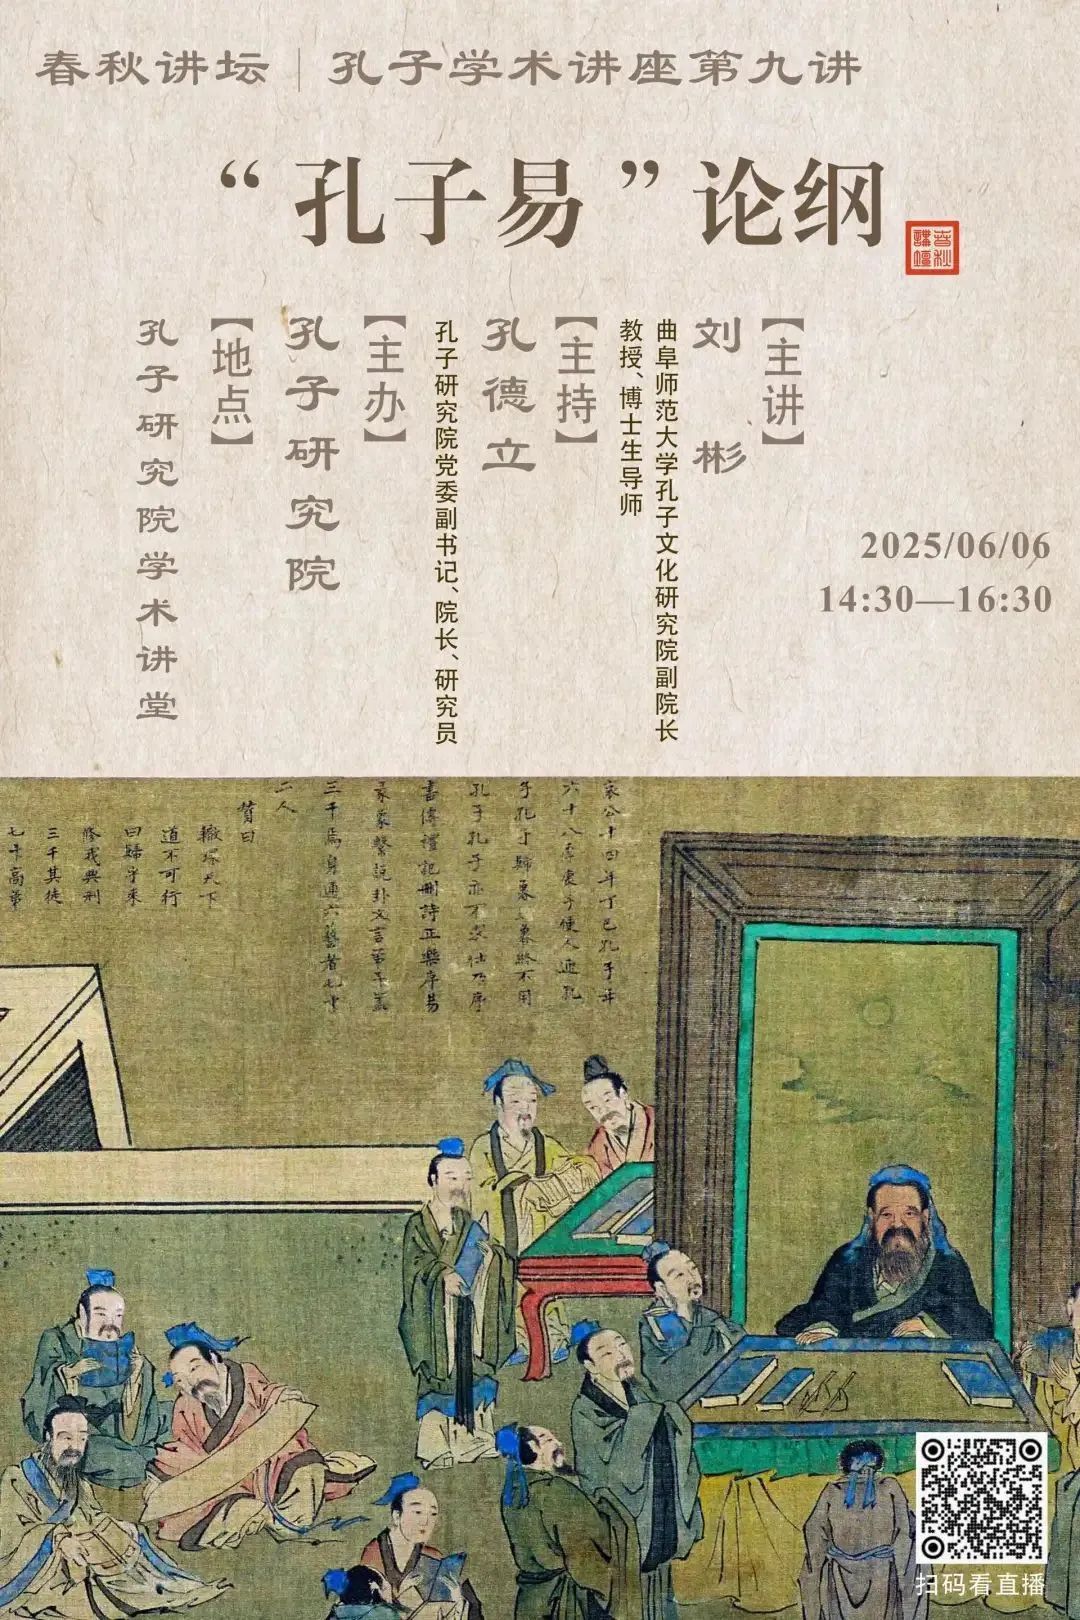 春秋讲坛｜孔子学术讲座第九讲
“孔子易”论纲
春秋
講壇
2025/06/06
14:30—16:30
【主讲】
刘彬
曲阜师范大学孔子文化研究院副院长
教授、博士生导师
【主持】
孔德立
孔子研究院党委副书记、院长、研究员
【主办】
孔子研究院
【地点】
孔子研究院学术讲堂
哀公十四年丁巳孔子年
六十八季康子使人迎孔
子孔子歸魯魯終不用
孔子孔子亦不求仕乃序
書傳禮記刪詩正樂序易
彖象繫說卦文言弟子蓋
三千焉身通六藝者七十
二人
贊曰
轍環天下
道不可行
曰歸乎來
三千其徒
扫码看直播